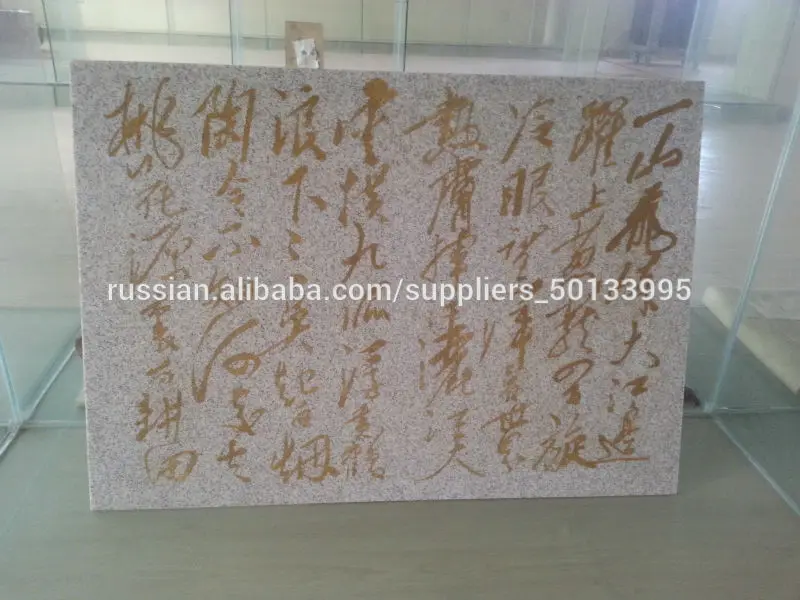 一山飛峙大江邊
躍上葱蘢四百旋
冷眼望洋看世界
熱膚揮汗灑江天
雲横九派浮黄鶴
浪下三吳起白烟
陶令不知何處去
桃花源裏可耕田
russian.alibaba.com/suppliers_50133995